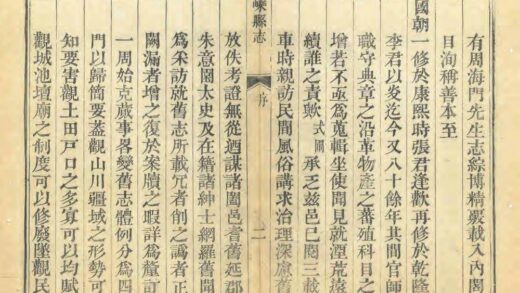 有周海門先生志綜博精覈載入內閣
目洵稱善本至
國朝一修於康熙時張君逢歡再修於乾隆
李君以炎迄今又八十餘年其間官師
職守典章之沿革物產之蕃殖科目之
增若不亟爲蒐輯坐使聞見就湮荒遠
續誰之責歟式圖承乏茲邑已閱三載
車時親訪民間風俗講求治理深慮舊
嵊縣志
序
二
放佚考證無從廼謀諸闔邑耆舊延郡
朱意園太史及在籍諸紳士網羅舊聞
爲采訪就舊志所載冗者削之譌者正
闕漏者增之復於案牘之暇詳爲釐訂
一周始克蕆事畧變舊志體例分爲四
門以歸簡要蓋觀山川疆域之形勢可
知要害觀土田戸口之多寡可以均賦
觀城池壇廟之制度可以修廢墜觀民